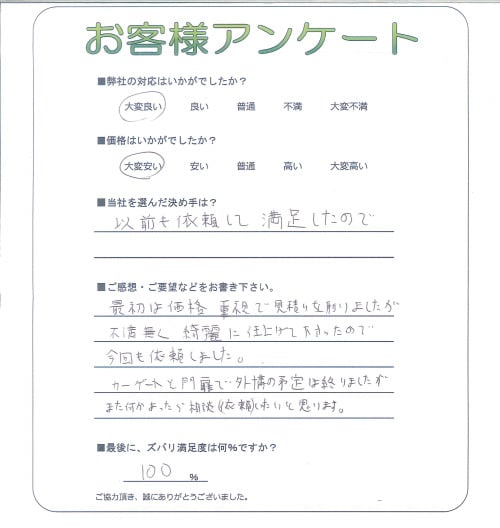 お客様アンケート
■弊社の対応はいかがでしたか？
大変良い 良い 普通 不満 大変不満
■価格はいかがでしたか？
大変安い 安い 普通 高い 大変高い
■当社を選んだ決め手は？
以前も依頼して満足したので
■ご感想・ご要望などをお書き下さい。
最初は価格重視で見積りを取りましたが
不満無く綺麗に仕上げて下さったので
今回も依頼しました。
カーゲートと門扉で外構の予定は終りましたが
また何かあったら相談(依頼)したいと思います。
■最後に、ズバリ満足度は何％ですか？
100 ％
ご協力頂き、誠にありがとうございました。